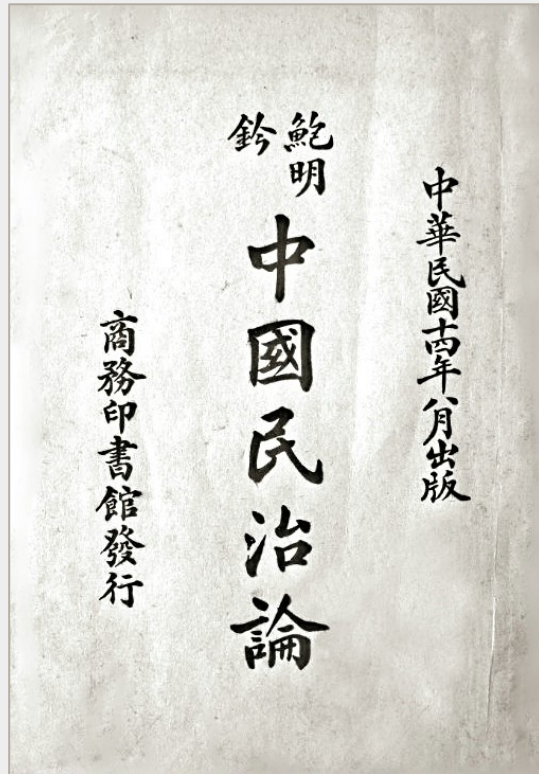 中華民國十四年八月出版
鮑明鈐
中國民治論
商務印書館發行